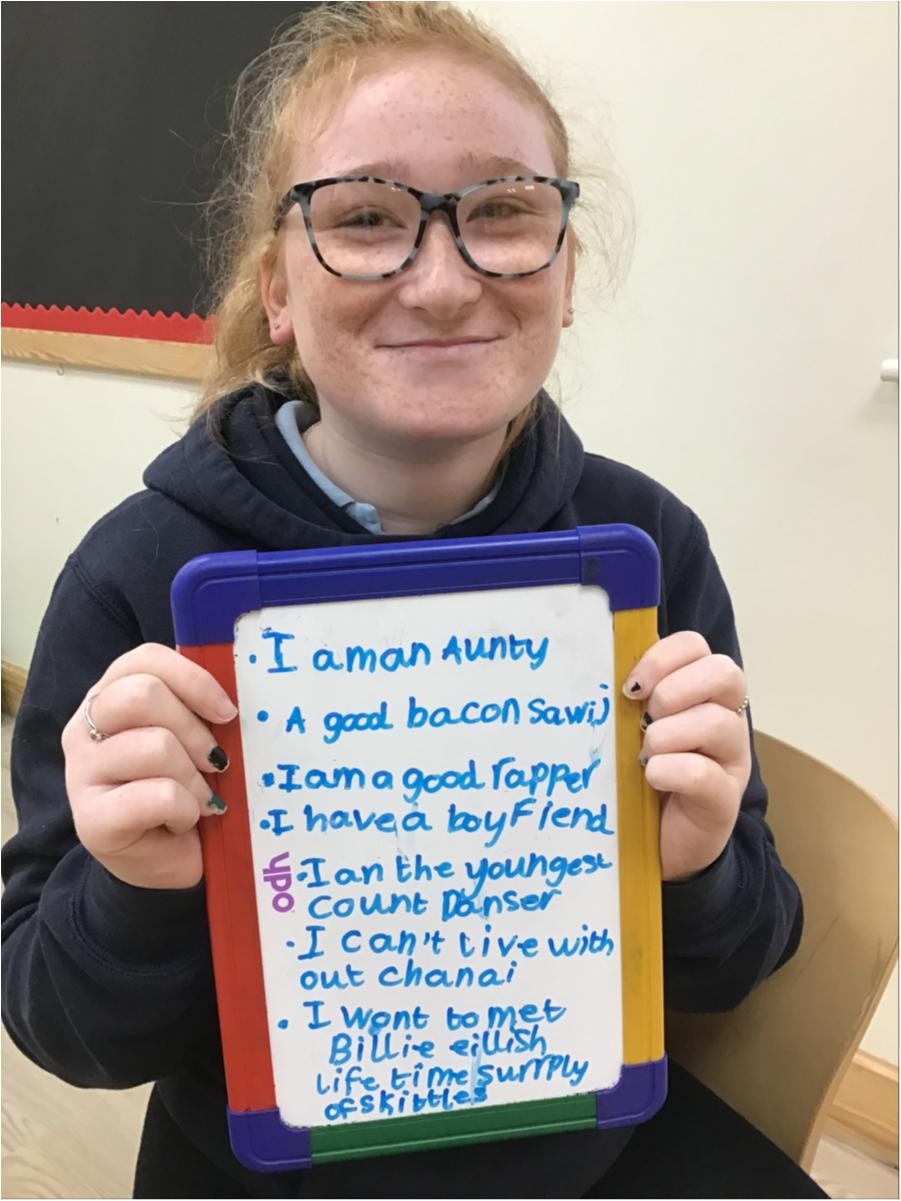 · I am an Aunty
· A good bacon Sawij
· I am a good rapper
· I have a boyFiend
ypo
· I an the youngest
count Danser
· I can't live with
out chanai
· I Wont to met
Billie eillish
life time surrply
of skittles